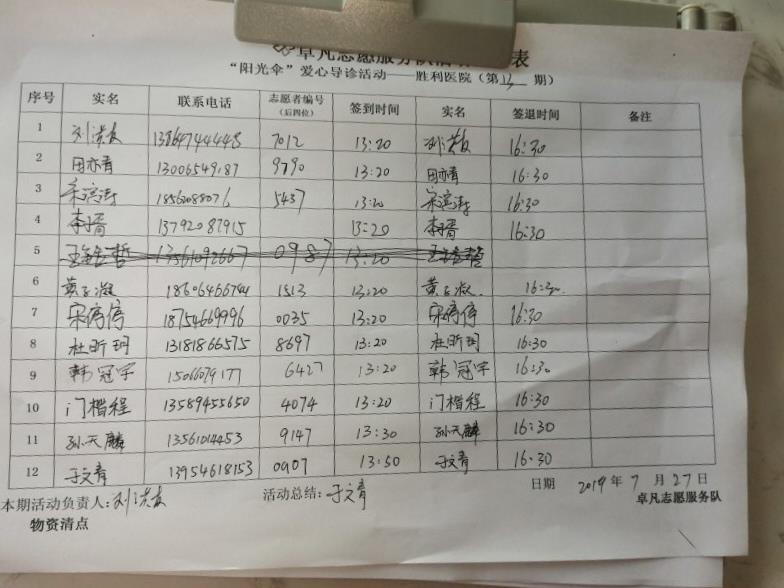 卓凡志愿服务队活动 表
“阳光伞”爱心导诊活动——胜利医院（第13期）
序号 实名 联系电话 志愿者编号（后四位） 签到时间 实名 签退时间 备注
1 13864744448 7012 13:20 16:30
2 田亦青 13006549187 9790 13:20 田亦青 16:30
3 宋滨涛 1856088076 5437 13:20 宋滨涛 16:30
4 李搢 13792087915 13:20 李搢 16:30
5 13561092667 0987 13:20
6 黄子淑 18606466744 1513 13:20 黄子淑 16:30
7 宋婷婷 18754669996 0035 13:20 宋婷婷 16:30
8 杜昕珂 13181866575 8697 13:20 杜昕珂 16:30
9 韩冠宇 1506679177 6427 13:20 韩冠宇 16:30
10 门楷程 13589455650 4074 13:20 门楷程 16:30
11 孙天麟 13561014453 9147 13:30 孙天麟 16:30
12 于文青 13954618153 0907 13:50 于文青 16:30
日期 2019年7月27日
本期活动负责人: 活动总结: 于文青 卓凡志愿服务队
物资清点